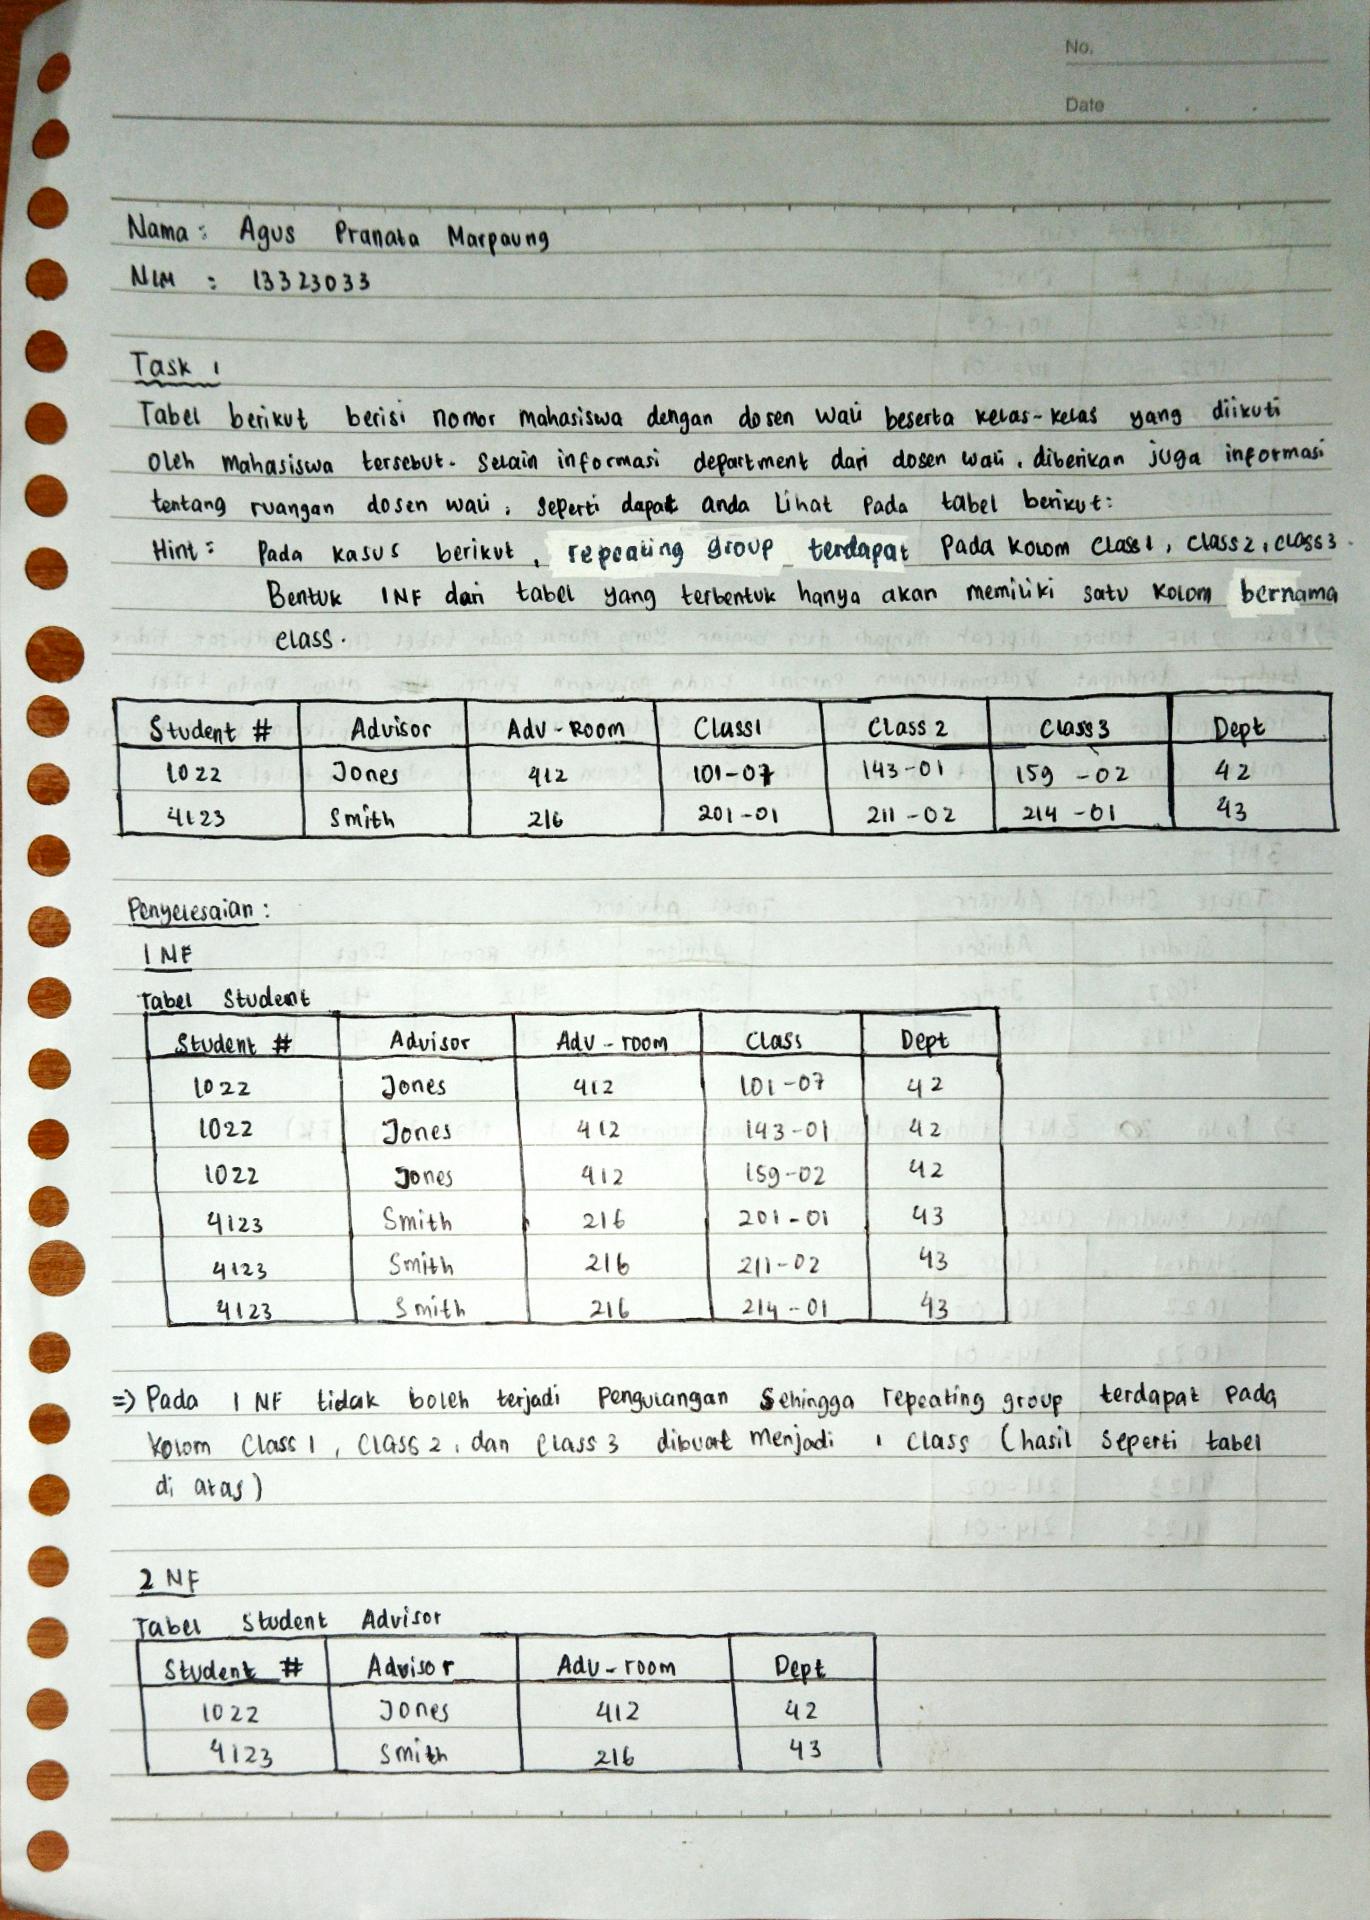 No.
Date
Nama : Agus Pranata Marpaung
NIM : 13323033
Task 1
Tabel berikut berisi nomor mahasiswa dengan dosen wali beserta kelas-kelas yang diikuti
oleh mahasiswa tersebut. Selain informasi department dari dosen wali, diberikan juga informasi
tentang ruangan dosen wali, seperti dapat anda lihat pada tabel berikut:
Hint : Pada kasus berikut, repeating group terdapat pada kolom class1, class2, class3.
Bentuk 1NF dari tabel yang terbentuk hanya akan memiliki satu kolom bernama
class.
Student # Advisor Adv-Room Class1 Class2 Class3 Dept
1022 Jones 412 101-07 143-01 159-02 42
4123 Smith 216 201-01 211-02 214-01 43
Penyelesaian :
1 NF
Tabel Student
Student # Advisor Adv-room Class Dept
1022 Jones 412 101-07 42
1022 Jones 412 143-01 42
1022 Jones 412 159-02 42
4123 Smith 216 201-01 43
4123 Smith 216 211-02 43
4123 Smith 216 214-01 43
=> Pada 1 NF tidak boleh terjadi Pengulangan Sehingga repeating group terdapat pada
kolom Class 1, Class 2, dan Class 3 dibuat menjadi 1 class (hasil seperti tabel
di atas)
2 NF
Tabel Student Advisor
Student # Advisor Adv-room Dept
1022 Jones 412 42
4123 Smith 216 43